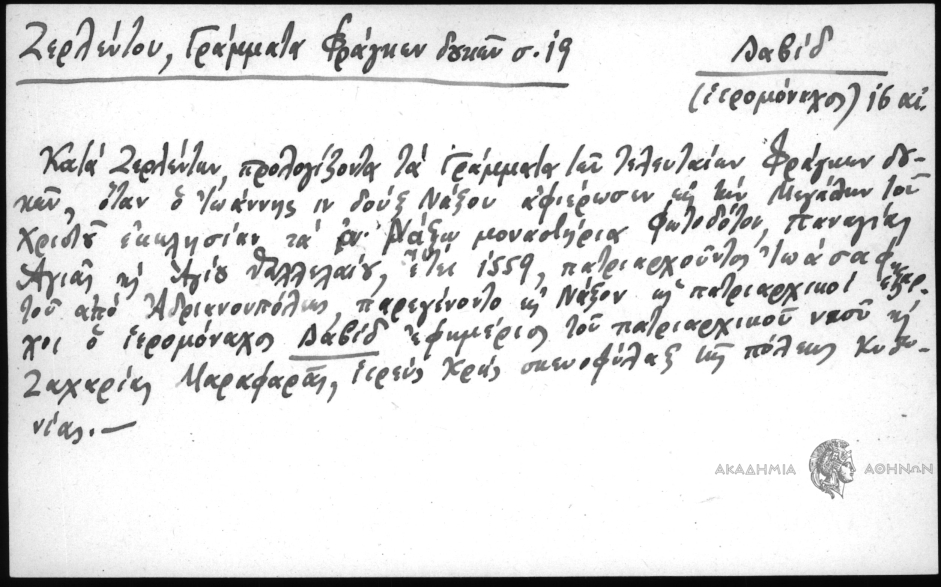 Ζερλέντου, Γράμματα Φράγκων δουκῶν σ. 19
Δαβίδ
(ἱερομόναχος) 16 αἰ.
Κατά Ζερλέντην, προλογίζοντα τά Γράμματα τῶν τελευταίων Φράγκων δου-
κῶν, ὅταν ὁ Ἰωάννης IV δούξ Νάξου ἀφιέρωσεν εἰς τήν Μεγάλην τοῦ
Χριστοῦ ἐκκλησίαν τά ἐν Νάξῳ μοναστήρια Φωτοδότου, Παναγίας
Ἀγιᾶς κ Ἁγίου Θαλλελαίου, ἔτει 1559, πατριαρχοῦντος Ἰωάσαφ
τοῦ ἀπό Ἀδριανουπόλεως, παρεγένοντο εἰς Νάξον ὡς πατριαρχικοί ἔξαρ-
χοι ὁ ἱερομόναχος Δαβίδ ἐφημέριος τοῦ πατριαρχικοῦ ναοῦ κ
Ζαχαρίας Μαραφαρᾶς, ἱερεύς Κρής σκευοφύλαξ τῆς πόλεως Κυδω-
νίας.—
ΑΚΑΔΗΜΙΑ ΑΘΗΝΩΝ